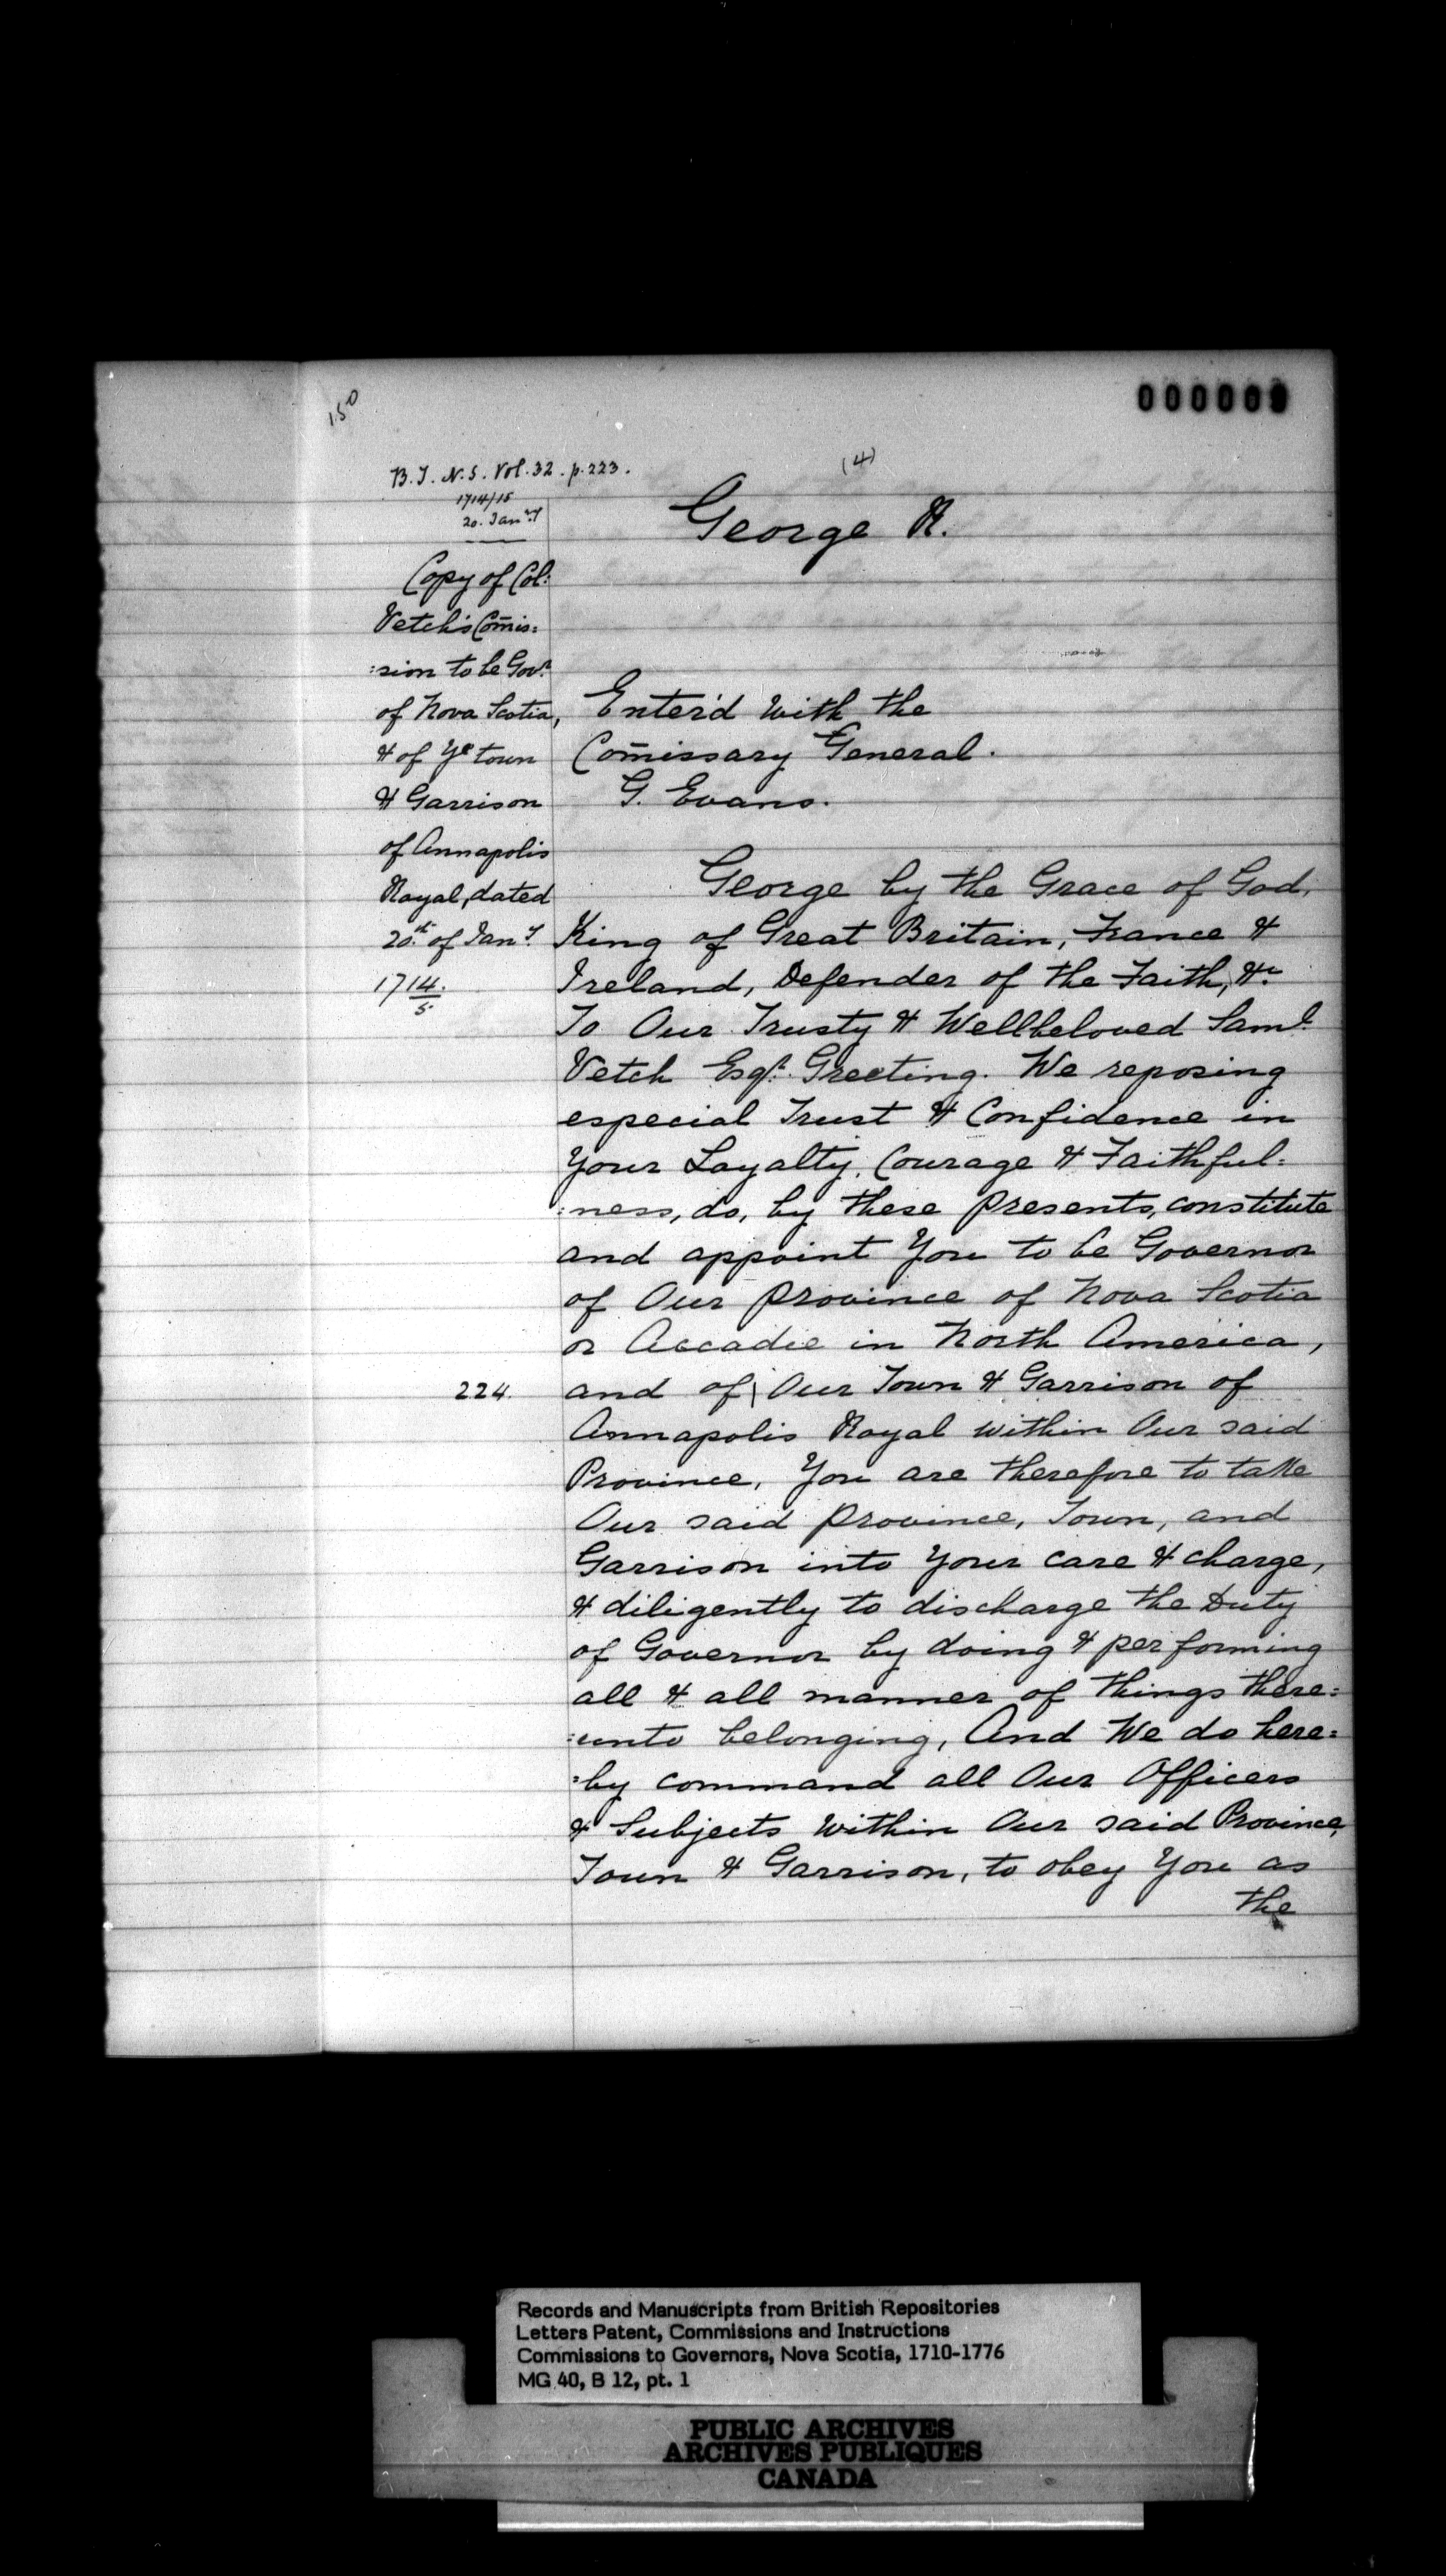 000009
150
B.T. N.S. Vol. 32. p. 223.
(4)
1714/15
20. Jan.ry
George R.
Copy of Col:
Vetch's Com̄is:
:sion to be Gov.r
of Nova Scotia,
& of Ye town
& Garrison
of Annapolis
Royal, dated
20.th of Jan.y
1714.
5.
Enter'd with the
Com̄issary General.
G. Evans.
George by the Grace of God,
King of Great Britain, France &
Ireland, Defender of the Faith, &c.
To Our Trusty & Wellbeloved Sam.l
Vetch Esq.r Greeting. We reposing
especial Trust & Confidence in
Your Loyalty, Courage & Faithful:
:ness, do, by these presents, constitute
and appoint You to be Governor
of Our Province of Nova Scotia
or Accadie in North America,
224.
and of \ Our Town & Garrison of
Annapolis Royal within Our said
Province, You are therefore to take
Our said Province, Town, and
Garrison into Your care & charge,
& diligently to discharge the Duty
of Governor by doing & performing
all & all manner of things there:
:unto belonging, And We do here:
:by command all Our Officers
& Subjects within Our said Province,
Town & Garrison, to obey You as
the
Records and Manuscripts from British Repositories
Letters Patent, Commissions and Instructions
Commissions to Governors, Nova Scotia, 1710-1776
MG 40, B 12, pt. 1
PUBLIC ARCHIVES
ARCHIVES PUBLIQUES
CANADA